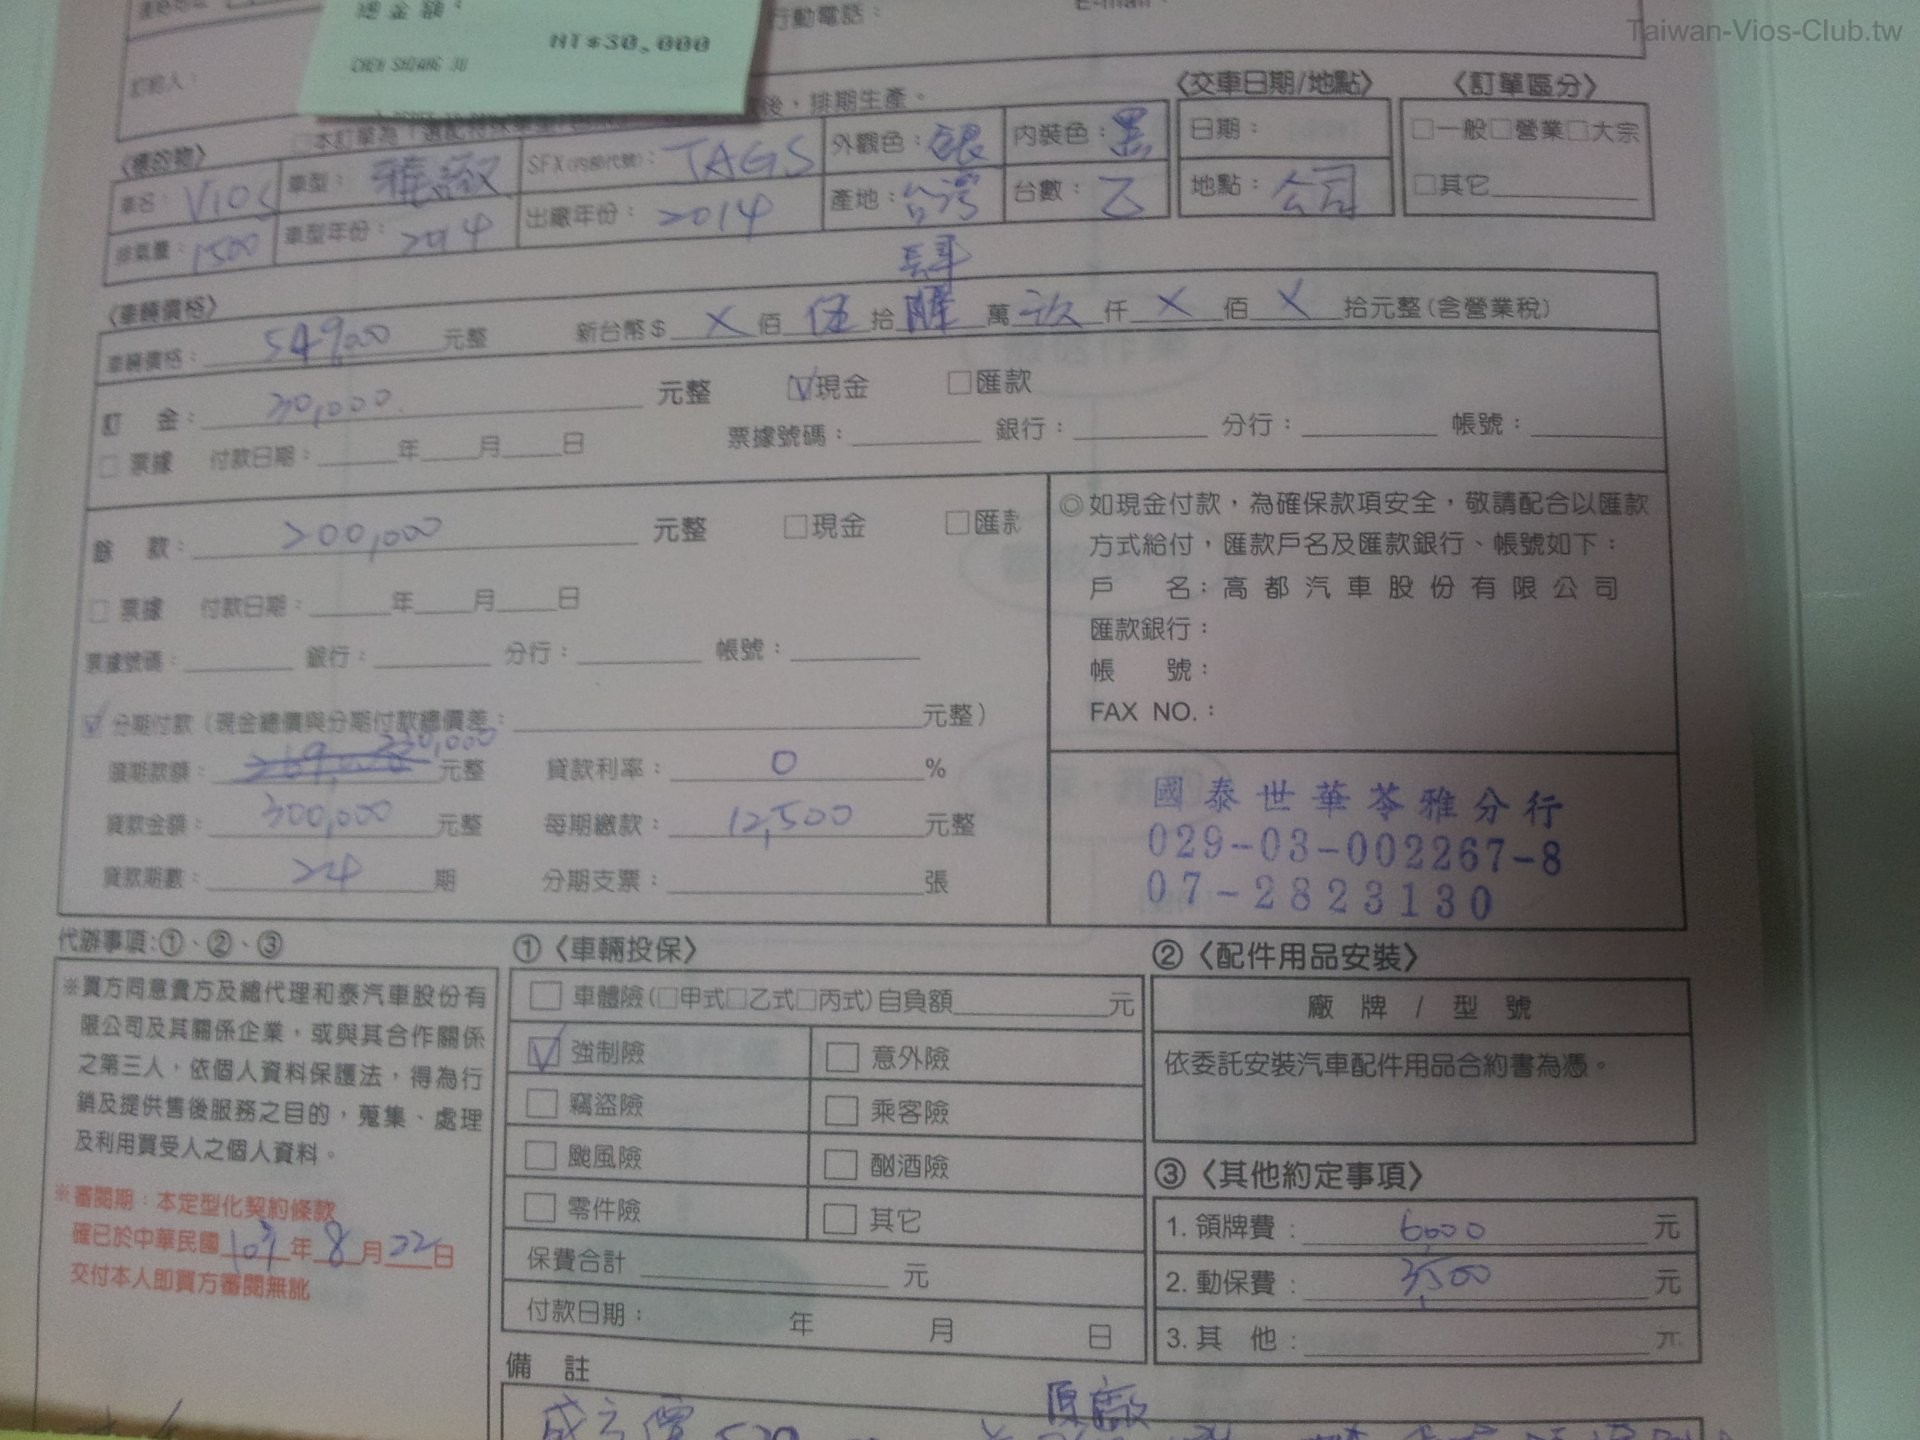 Taiwan-Vios-Club.tw
總金額：
NT$30,000
CHEN SHIANG JU
行動電話：
E-mail：
訂購人：
後，排期生產。
〈交車日期/地點〉
〈訂單區分〉
□本訂單為「選配特殊
〈標的物〉
車名：VIOS 車型：雅緻 SFX(內部代號)：TAGS 外觀色：銀 內裝色：黑
日期：
□一般□營業□大宗
排氣量：1500 車型年份：2014 出廠年份：2014 產地：台灣 台數：乙
地點：公司
□其它
〈車輛價格〉
肆
車輛價格：549,000 元整 新台幣$ X 佰 伍 拾 陸 萬 玖 仟 X 佰 X 拾元整(含營業稅)
訂 金：30,000 元整 ☑現金 □匯款
□票據 付款日期：＿年＿月＿日 票據號碼：＿ 銀行：＿ 分行：＿ 帳號：＿
餘 款：200,000 元整 □現金 □匯款
□票據 付款日期：＿年＿月＿日
票據號碼：＿ 銀行：＿ 分行：＿ 帳號：＿
◎如現金付款，為確保款項安全，敬請配合以匯款
方式給付，匯款戶名及匯款銀行、帳號如下：
戶 名：高都汽車股份有限公司
匯款銀行：
帳 號：
FAX NO.：
國泰世華苓雅分行
029-03-002267-8
07-2823130
☑分期付款（現金總價與分期付款總價差：＿元整）
頭期款額：230,000 元整 貸款利率：0 %
貸款金額：300,000 元整 每期繳款：12,500 元整
貸款期數：24 期 分期支票：＿張
代辦事項:①、②、③
※買方同意貴方及總代理和泰汽車股份有
限公司及其關係企業，或與其合作關係
之第三人，依個人資料保護法，得為行
銷及提供售後服務之目的，蒐集、處理
及利用買受人之個人資料。
※審閱期：本定型化契約條款
確已於中華民國103年8月22日
交付本人即買方審閱無訛
①〈車輛投保〉
□車體險(□甲式□乙式□丙式)自負額＿元
☑強制險 □意外險
□竊盜險 □乘客險
□颱風險 □酗酒險
□零件險 □其它
保費合計＿元
付款日期： 年 月 日
②〈配件用品安裝〉
廠 牌 / 型 號
依委託安裝汽車配件用品合約書為憑。
③〈其他約定事項〉
1. 領牌費：6,000 元
2. 動保費：3,500 元
3. 其 他：＿元
備 註
原廠
成交價